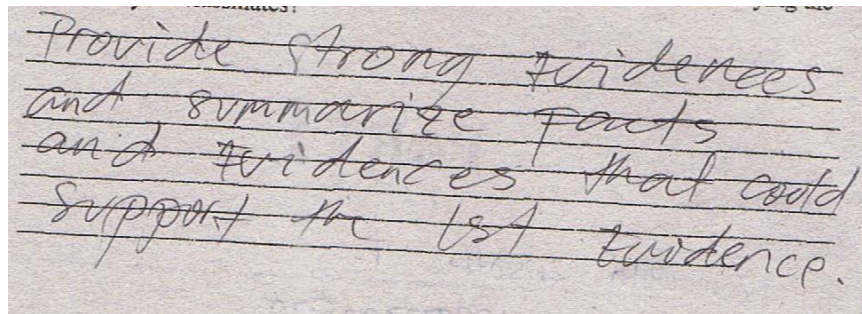 Provide strong Evidences
and summarize Facts
and Evidences that could
support the 1st Evidence.